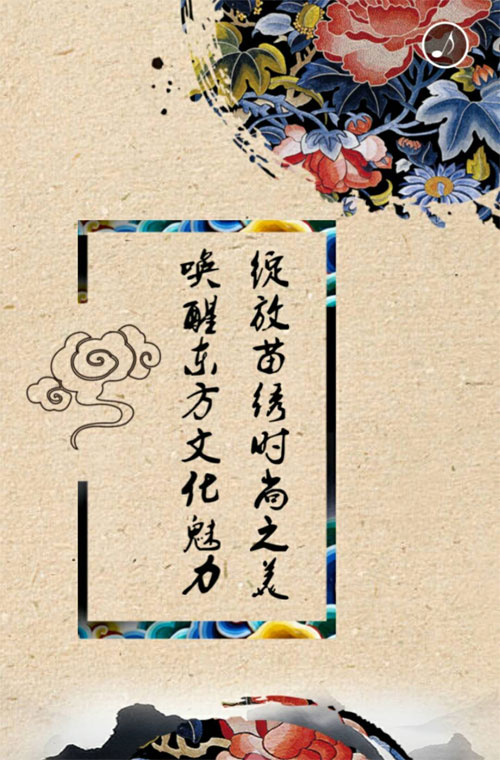 绽放苗绣时尚之美
唤醒东方文化魅力